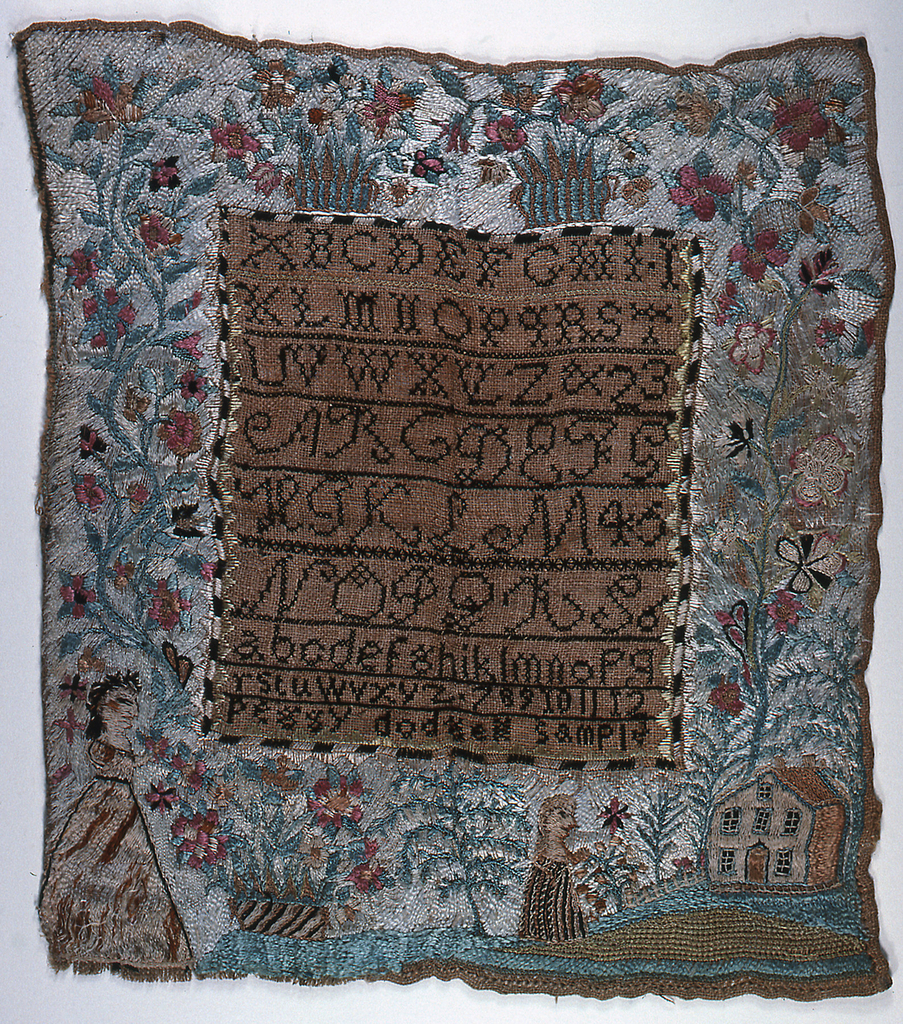 ABCDEFGHIJ
KLMNOPQRST
UVWXYZ&23
ABCDEFG
HIKLM45
NOPQRS6
abcdefghiklmnopq
rstuwvxyz 789101112
peggy dodges sample